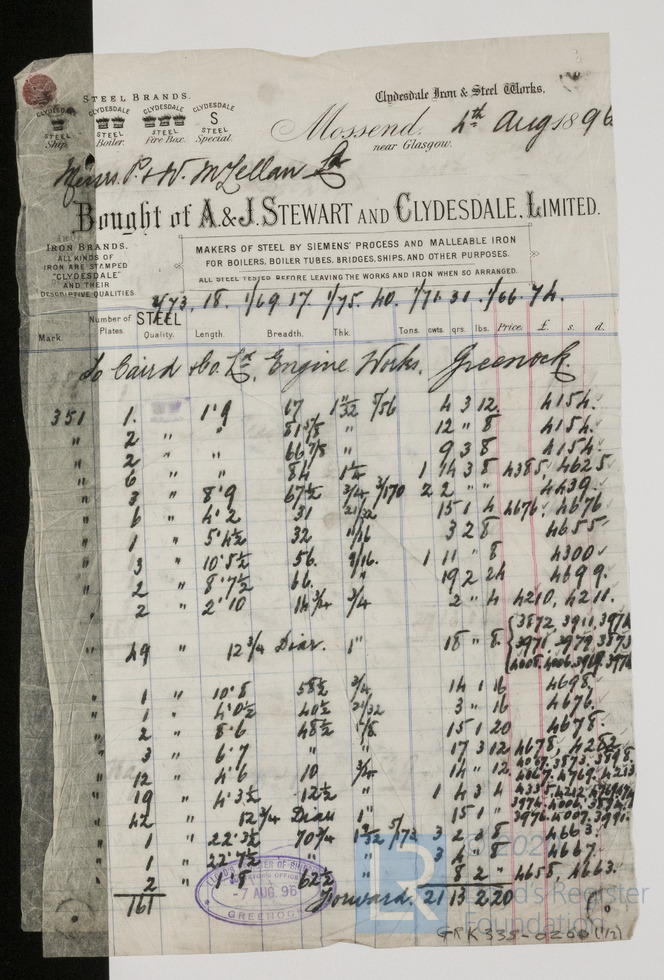 STEEL BRANDS.
CLYDESDALE STEEL Ship.
CLYDESDALE STEEL Boiler.
CLYDESDALE STEEL Fire Box.
CLYDESDALE S STEEL Special.
Clydesdale Iron & Steel Works,
Mossend, 4th Aug 1896
near Glasgow.
Messrs P. & W. McLellan Ld
Bought of A. & J. STEWART AND CLYDESDALE, LIMITED.
IRON BRANDS.
ALL KINDS OF
IRON ARE STAMPED
"CLYDESDALE"
AND THEIR
DESCRIPTIVE QUALITIES.
MAKERS OF STEEL BY SIEMENS' PROCESS AND MALLEABLE IRON
FOR BOILERS, BOILER TUBES, BRIDGES, SHIPS, AND OTHER PURPOSES.
ALL STEEL TESTED BEFORE LEAVING THE WORKS AND IRON WHEN SO ARRANGED.
18. 1/69 17. 1/75. 40. 1/71 31. 1/66. 74.
Mark. Number of Plates. STEEL Quality. Length. Breadth. Thk. Tons. cwts. qrs. lbs. Price. £. s. d.
To Caird & Co. Ld, Engine Works, Greenock.
351 1. 1'9 67 1 5/32 5/56 4 3 12. 4154.
" 2 " " 81 5/8 " 12 " 8 4154.
" 2 " " 66 7/8 " 9 3 8 4154.
" 6 " " 84 1 1/4 1 14 3 8 4385, 4625
" 3 " 8'9 67 1/2 3/4 3/170 2 2 " " 4439.
" 6 " 4'2 31 21/32 15 1 4 4676, 4676
" 1 " 5'4 1/2 32 11/16 3 2 8 4655
" 3 " 10'5 1/2 56. 9/16. 1 11 " 8 4300
" 2 " 8'7 1/2 66. " 19 2 24 4699.
" 2 " 2'10 14 3/4 3/4 2 " 4 4210, 4211.
3872, 3911, 3974
" 49 " 12 3/4 Diar. 1" 18 " 8. 3971, 3979, 3873
4008, 4006, 3969, 3970
" 1 " 10'8 58 1/2 3/4 14 1 16 4698
" 1 " 4'0 1/2 40 1/2 21/32 3 " 16 4676.
" 2 " 8'6 48 1/2 7/8 15 1 20 4678.
" 3 " 6'7 " " 17 3 12 4678, 4282
4067, 3873, 3898
" 12 " 4'6 10 3/4 14 " 12.
" 19 " 4'3 1/2 12 1/2 " 1 4 3 4
" 42 " 12 3/4 Diar 1" 15 1 " 3976, 4007, 3991
" 1 " 22'3 1/2 70 3/4 5/173 3 2 3 8 4663.
" 1 " 22'7 1/2 " " 3 4 " 8 4667
" 2 " 1'8 62 1/2 " 8 2 " 4658, 4663.
161 Forward. 21 13 2 20
-7 AUG. 96
GREENOCK
LR
© 2002
Lloyd's Register
Foundation
GRK335-0200 (1/2)